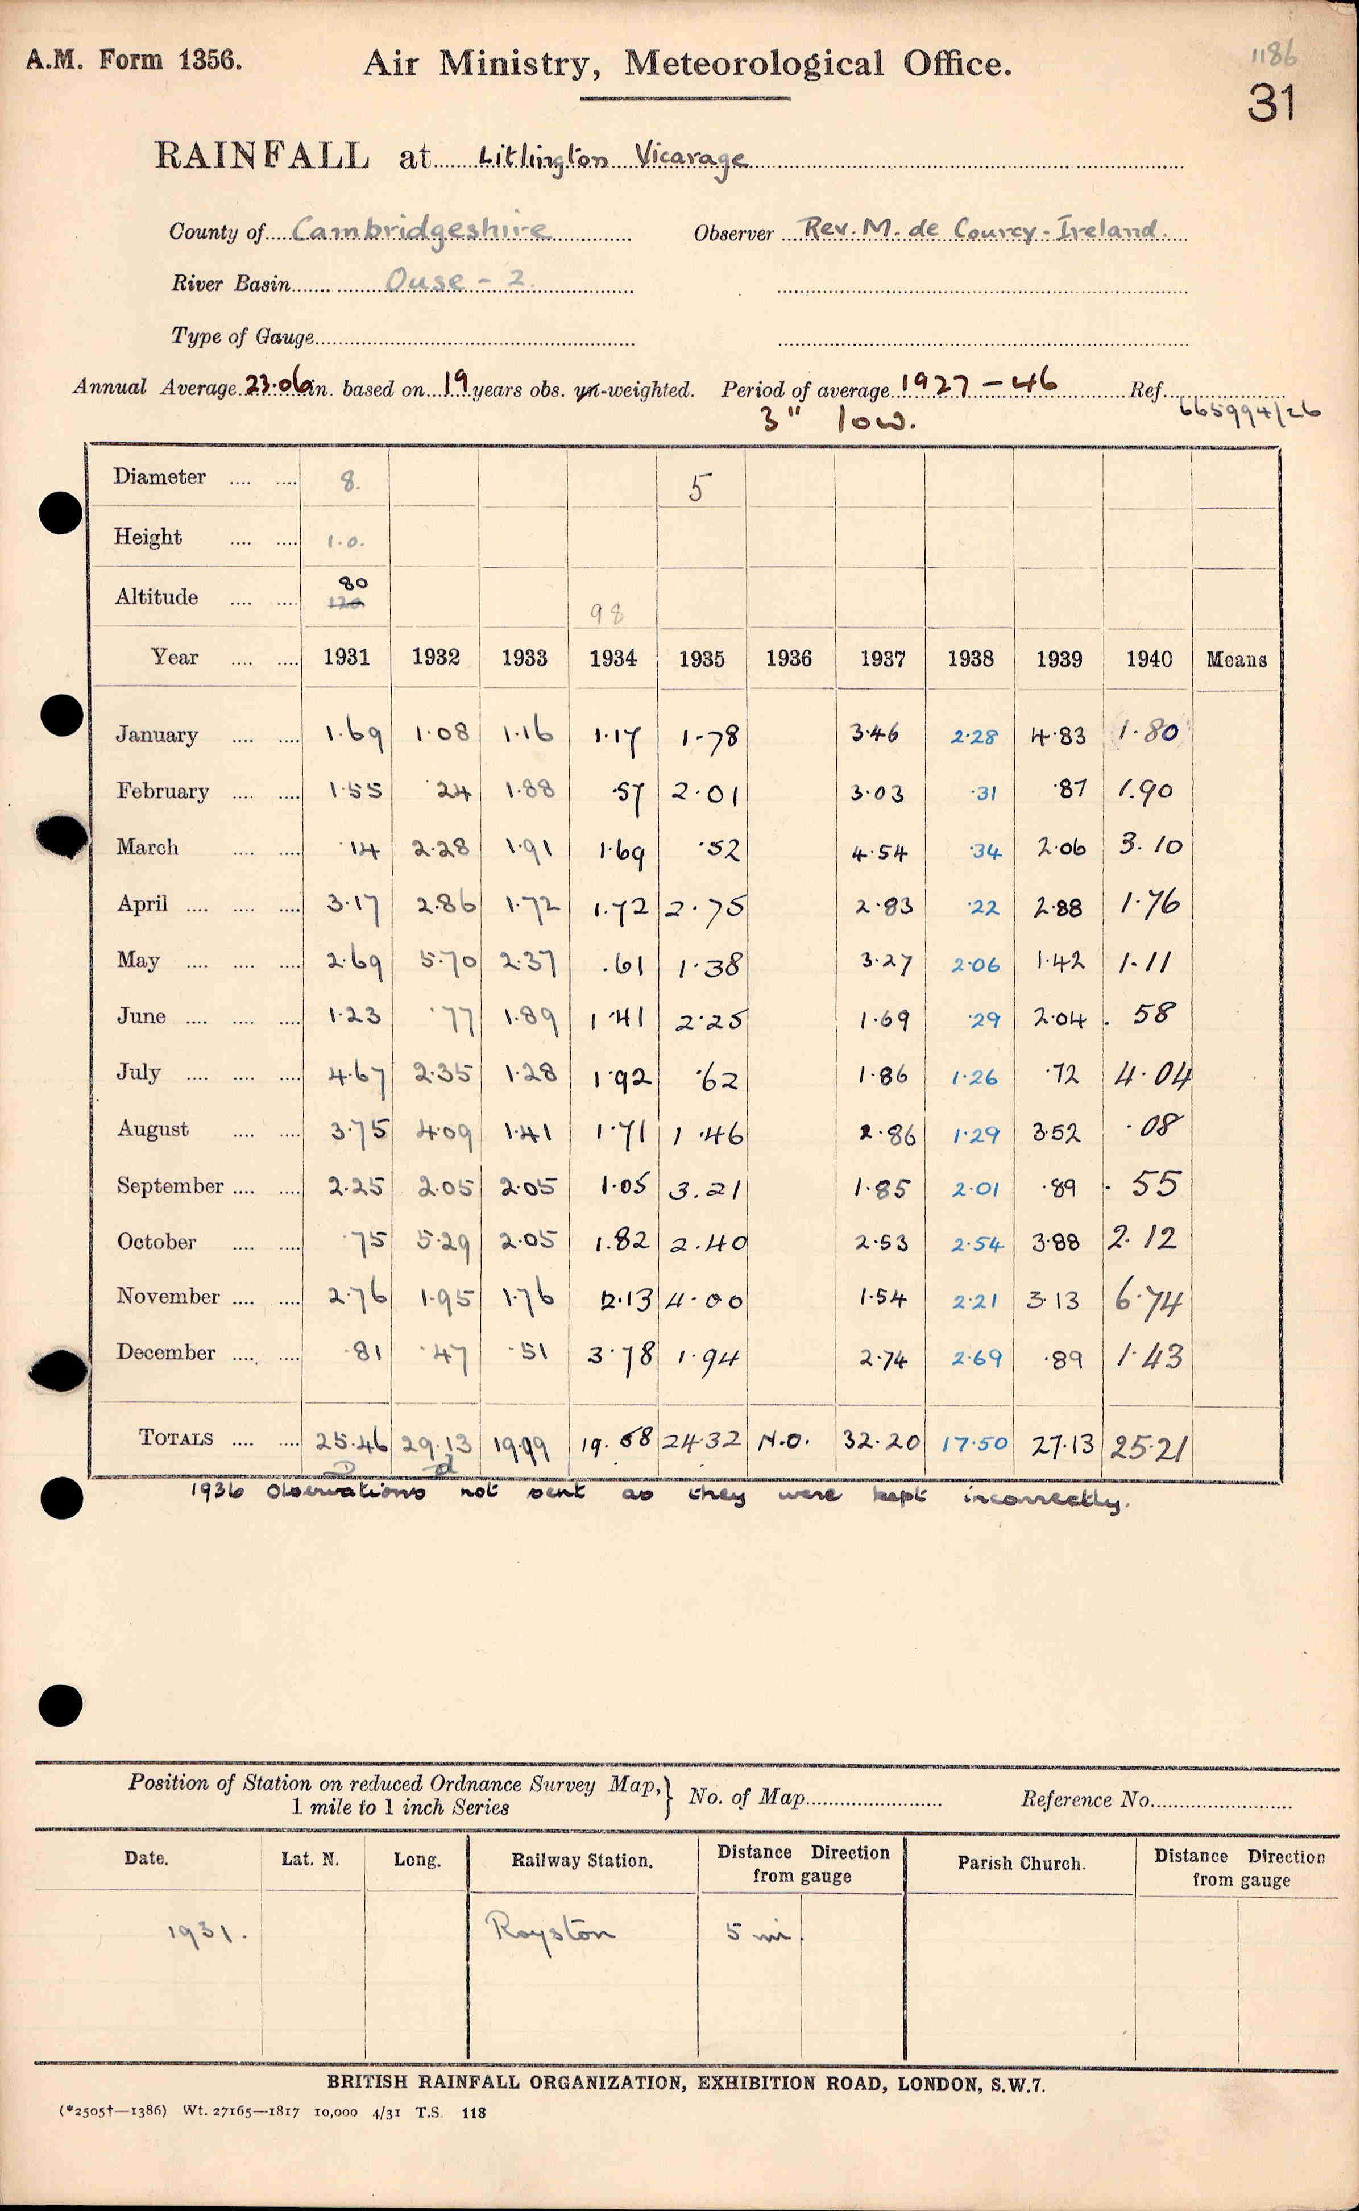 1186
A.M. Form 1356. Air Ministry, Meteorological Office.
31
RAINFALL at Litlington Vicarage
County of Cambridgeshire Observer Rev. M. de Courcy-Ireland.
River Basin Ouse - 2
Type of Gauge
Annual Average 23.06 in. based on 19 years obs. un-weighted. Period of average 1927 - 46 Ref. 665994/26
3" low.
Diameter 8. 5
Height 1.0.
80
Altitude 120 98
Year 1931 1932 1933 1934 1935 1936 1937 1938 1939 1940 Means
January 1.69 1.08 1.16 1.17 1.78 3.46 2.28 4.83 1.80
February 1.55 .24 1.88 .57 2.01 3.03 .31 .87 1.90
March .14 2.28 1.91 1.69 .52 4.54 .34 2.06 3.10
April 3.17 2.86 1.72 1.72 2.75 2.83 .22 2.88 1.76
May 2.69 5.70 2.37 .61 1.38 3.27 2.06 1.42 1.11
June 1.23 .77 1.89 1.41 2.25 1.69 .29 2.04 .58
July 4.67 2.35 1.28 1.92 .62 1.86 1.26 .72 4.04
August 3.75 4.09 1.41 1.71 1.46 2.86 1.29 3.52 .08
September 2.25 2.05 2.05 1.05 3.21 1.85 2.01 .89 .55
October .75 5.29 2.05 1.82 2.40 2.53 2.54 3.88 2.12
November 2.76 1.95 1.76 2.13 4.00 1.54 2.21 3.13 6.74
December .81 .47 .51 3.78 1.94 2.74 2.69 .89 1.43
TOTALS 25.46 29.13 19.99 19.58 24.32 N.O. 32.20 17.50 27.13 25.21
D d
1936 observations not sent as they were kept incorrectly.
Position of Station on reduced Ordnance Survey Map, } No. of Map Reference No.
1 mile to 1 inch Series
Date. Lat. N. Long. Railway Station. Distance Direction from gauge Parish Church. Distance Direction from gauge
1931. Royston 5 mi.
BRITISH RAINFALL ORGANIZATION, EXHIBITION ROAD, LONDON, S.W.7.
(*2505†—1386) Wt. 27165—1817 10,000 4/31 T.S. 118